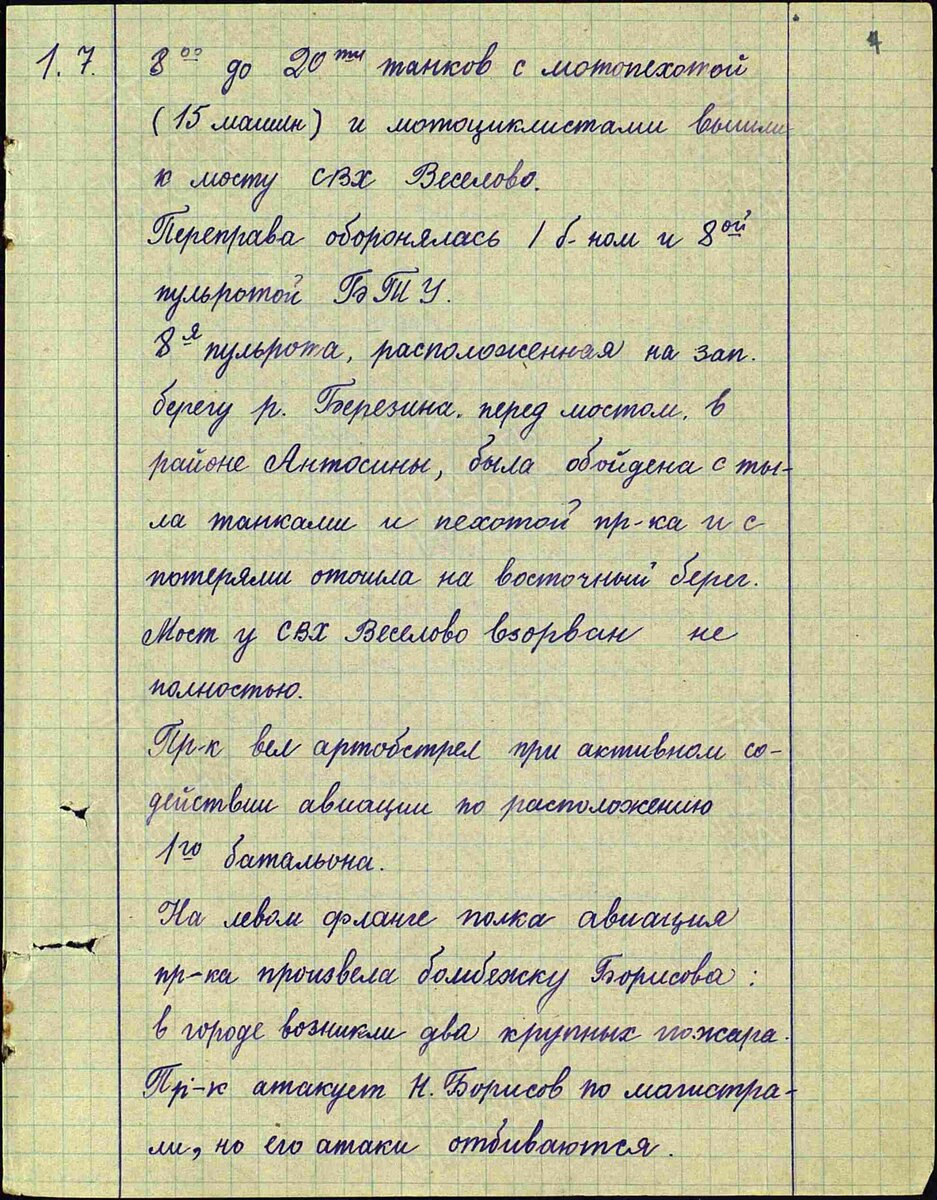 4
1.7. 8⁰⁰ до 20ᵗᵘ танков с мотопехотой
(15 машин) и мотоциклистами вышли
к мосту СВХ Веселово.
Переправа оборонялась 1 б-ном и 8ой
пульротой БТУ.
8я пульрота, расположенная на зап.
берегу р. Березина. перед мостом, в
районе Антосины, была обойдена с ты-
ла танками и пехотой пр-ка и с
потерями отошла на восточный берег.
Мост у СВХ Веселово взорван не
полностью.
Пр-к вел артобстрел при активном со-
действии авиации по расположению
1го батальона.
На левом фланге полка авиация
пр-ка произвела бомбежку Борисова:
в городе возникли два крупных пожара.
Пр-к атакует Н. Борисов по магистра-
ли, но его атаки отбиваются.